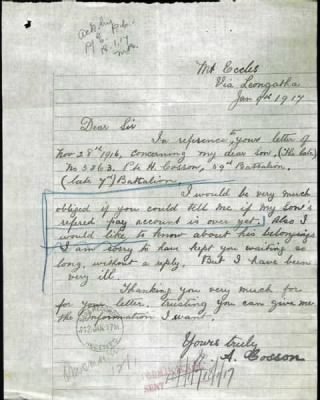 Ack by
P/C
18.1.17
Mt Eccles
Via Leongatha
Jan 9th 1917
Dear Sir
In refersence to your letter of
Nov 28th 1916, concerning my dear son, (The late)
No 3263. Pte H. Cosson, 59th Battalion.
(late 7th) Battalion.
I would be very much
obliged if you could tell me if my son's
refered pay account is over yet. Also I
would like to know about his belongings
I am sorry to have kept you waiting so
long, without a reply. But I have been
very ill.
Thanking you very much for
for your letter. trusting you can give me
the Information I want.
Yours truly
A. Cosson
SENT